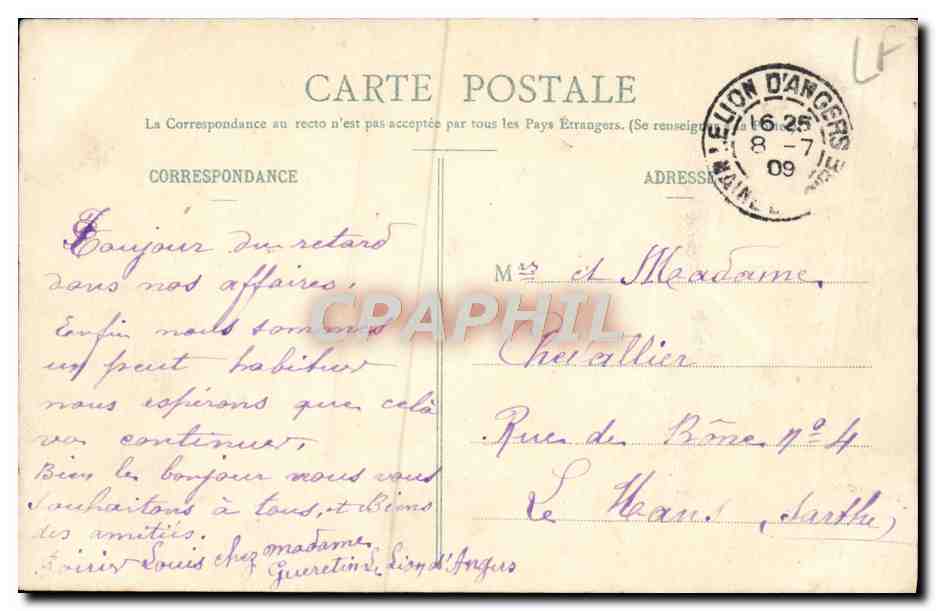 LF
CARTE POSTALE
La Correspondance au recto n'est pas acceptée par tous les Pays Étrangers. (Se renseigner à la Poste)
LE LION D'ANGERS
MAINE
16 25
8 -7
09
CORRESPONDANCE
ADRESSE
Toujour du retard
dans nos affaires.
Enfin nous sommes
un peut habituer
nous espérons que celà
va continuer,
Bien le bonjour nous vous
souhaitons à tous, et Biens
des amitiés.
Louis chez madame
Gueretin Le Lion d'Angers
Mr et Madame
Chevallier
Rue de Bône nº 4
Le Mans (Sarthe)
CPAPHIL